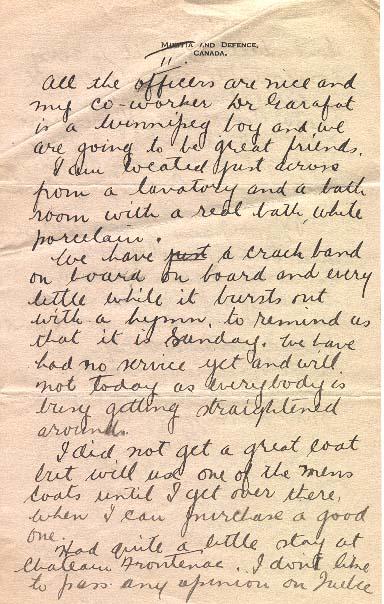 MILITIA AND DEFENCE,
CANADA.
II
All the officers are nice and
my co-worker Dr Garafat
is a Winnipeg boy and we
are going to be great friends.
I am located just across
from a lavatory and a bath
room with a real bath, white
porcelain.
We have just a crack band
on board on board and every
little while it bursts out
with a hymn, to remind us
that it is Sunday. We have
had no service yet and will
not today as everybody is
busy getting straightened
around.
I did not get a great coat
but will use one of the mens
coats until I get over there,
when I can purchase a good
one.
Had quite a little stay at
Chateau Frontenac. I don't like
to pass any opinion on Quebec